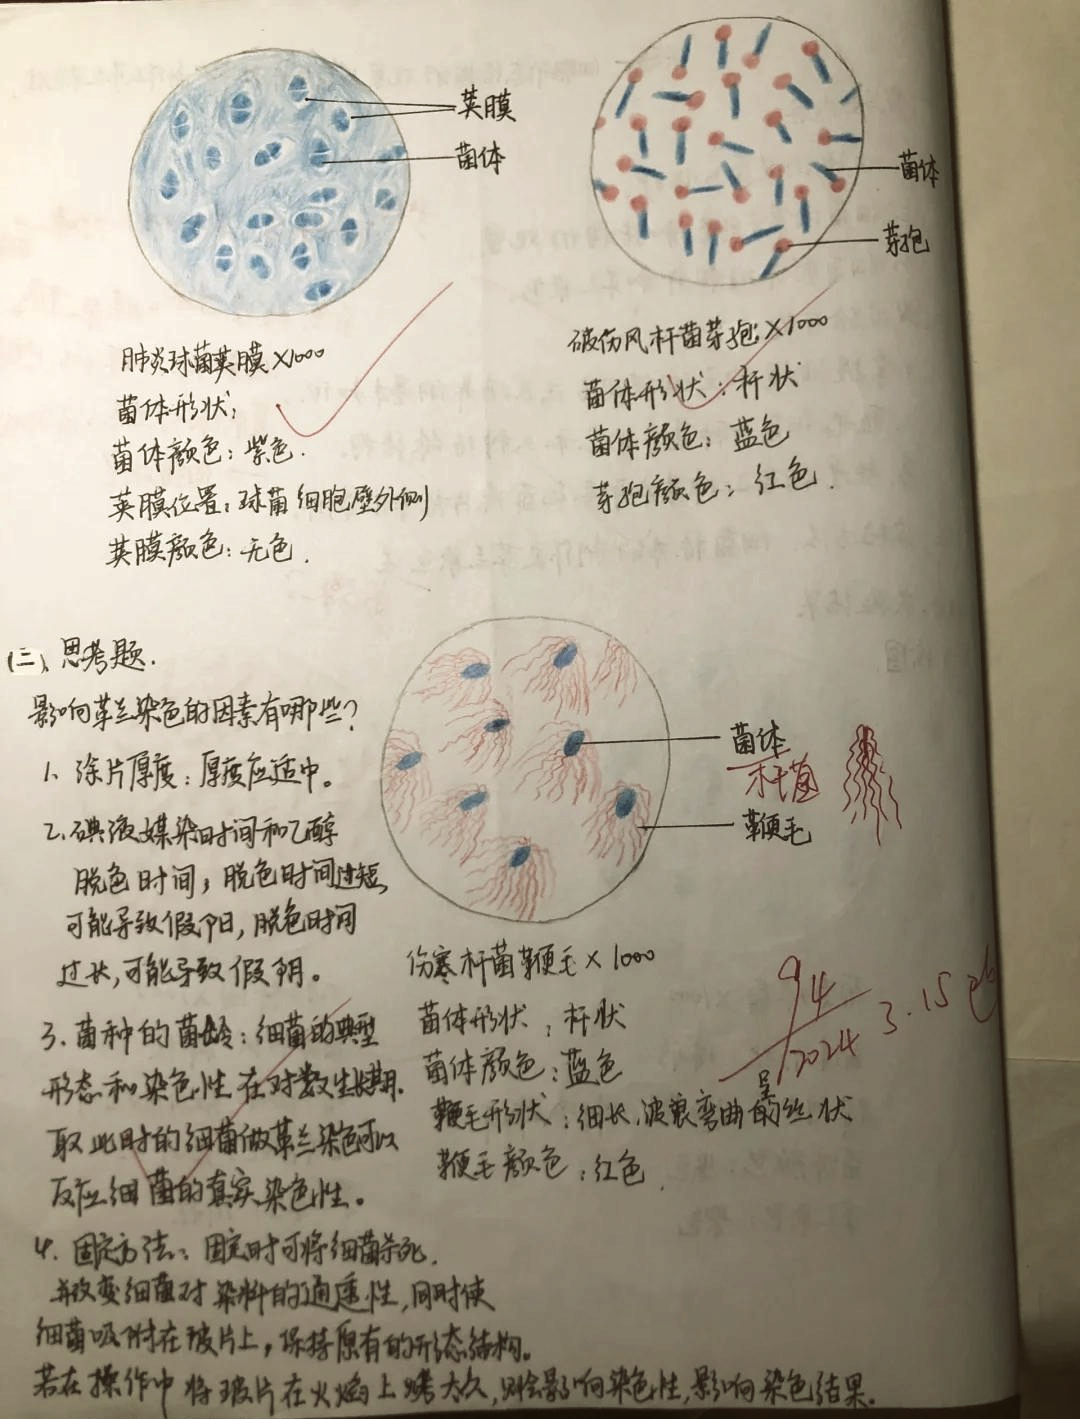 荚膜
菌体
菌体
芽孢
肺炎球菌荚膜×1000
菌体形状：
菌体颜色：紫色.
荚膜位置：球菌细胞壁外侧
荚膜颜色：无色.
破伤风杆菌芽孢×1000
菌体形状：杆状
菌体颜色：蓝色
芽孢颜色：红色.
(二)、思考题.
影响革兰染色的因素有哪些？
1、涂片厚度：厚度应适中。
2、碘液媒染时间和乙醇
脱色时间，脱色时间过短，
可能导致假阳，脱色时间
过长，可能导致假阴。
3、菌种的菌龄：细菌的典型
形态和染色性在对数生长期.
取此时的细菌做革兰染色可以
反应细菌的真实染色性。
4. 固定方法：固定时可将细菌杀死.
并改变细菌对染料的通透性，同时使
细菌吸附在玻片上，保持原有的形态结构。
若在操作中将玻片在火焰上烤太久，则会影响染色性，影响染色结果。
菌体
杆菌
鞭毛
伤寒杆菌鞭毛×1000
菌体形状：杆状
菌体颜色：蓝色
鞭毛形状：细长，波浪弯曲呈的丝状
鞭毛颜色：红色.
94
2024 3.15